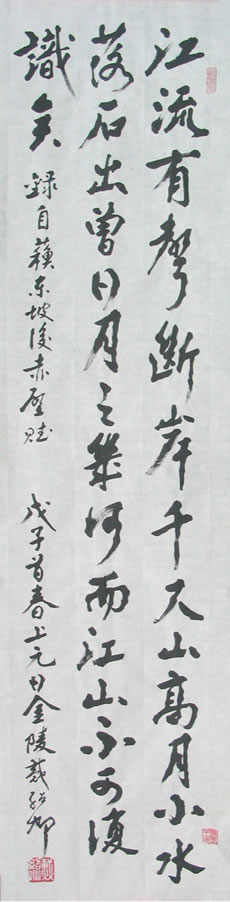 江流有聲斷岸千尺山高月小水
落石出曾日月之幾何而江山不可復
識矣 錄自蘇東坡後赤壁賦 戊子首春上元日金陵戴